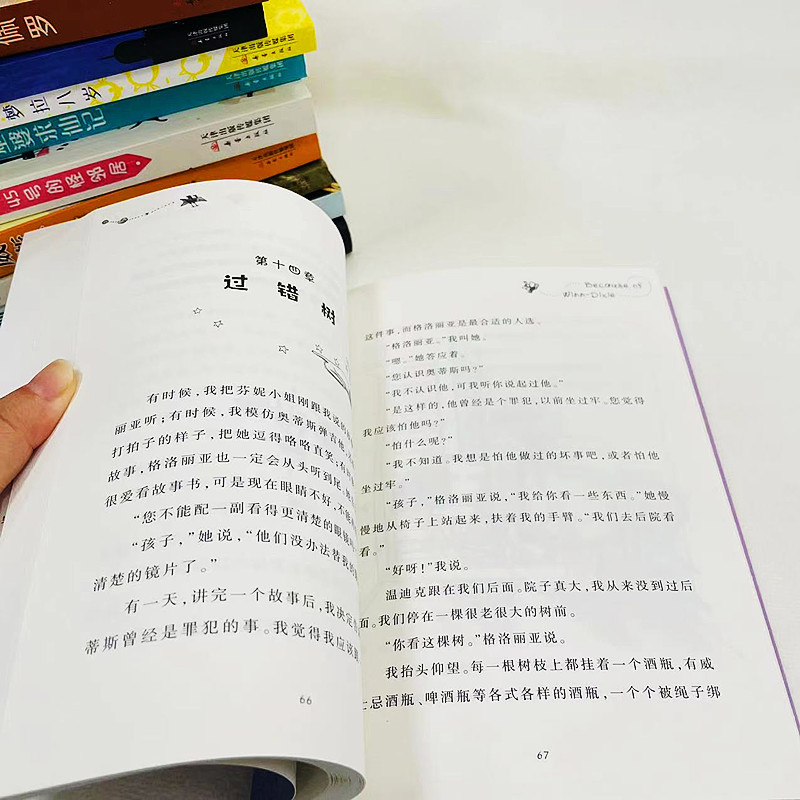 佩罗
天津出版传媒集团
新蕾出版社
天津出版传媒集团
新蕾出版社
拉八岁
天津出版传媒集团
新蕾出版社
婆求仙记
天津出版传媒集团
新蕾出版社
45号的怪邻居
第十四章
过错树
有时候，我把芬妮小姐刚跟我说的
丽亚听；有时候，我模仿奥蒂斯弹吉他
打拍子的样子，把她逗得咯咯直笑；有
故事，格洛丽亚也一定会从头听到尾
很爱看故事书，可是现在眼睛不好，不能
“您不能配一副看得更清楚的眼镜
“孩子，”她说，“他们没办法替我的
清楚的镜片了。”
有一天，讲完一个故事后，我决定
蒂斯曾经是罪犯的事。我觉得我应该
66
Because of
Winn-Dixie
这件事，而格洛丽亚是最合适的人选。
“格洛丽亚。”我叫她。
“嗯。”她答应着。
“您认识奥蒂斯吗？”
“我不认识他，可我听你说起过他。”
“是这样的，他曾经是个罪犯，以前坐过牢。您觉得
我应该怕他吗？”
“怕什么呢？”
“我不知道。我想是怕他做过的坏事吧，或者怕他
坐过牢。”
“孩子，”格洛丽亚说，“我给你看一些东西。”她慢
慢地从椅子上站起来，扶着我的手臂。“我们去后院看
看。”
“好呀！”我说。
温迪克跟在我们后面。院子真大，我从来没到过后
面。我们停在一棵很老很大的树前。
“你看这棵树。”格洛丽亚说。
我抬头仰望。每一根树枝上都挂着一个酒瓶，有威
士忌酒瓶、啤酒瓶等各式各样的酒瓶，一个个被绳子绑
67